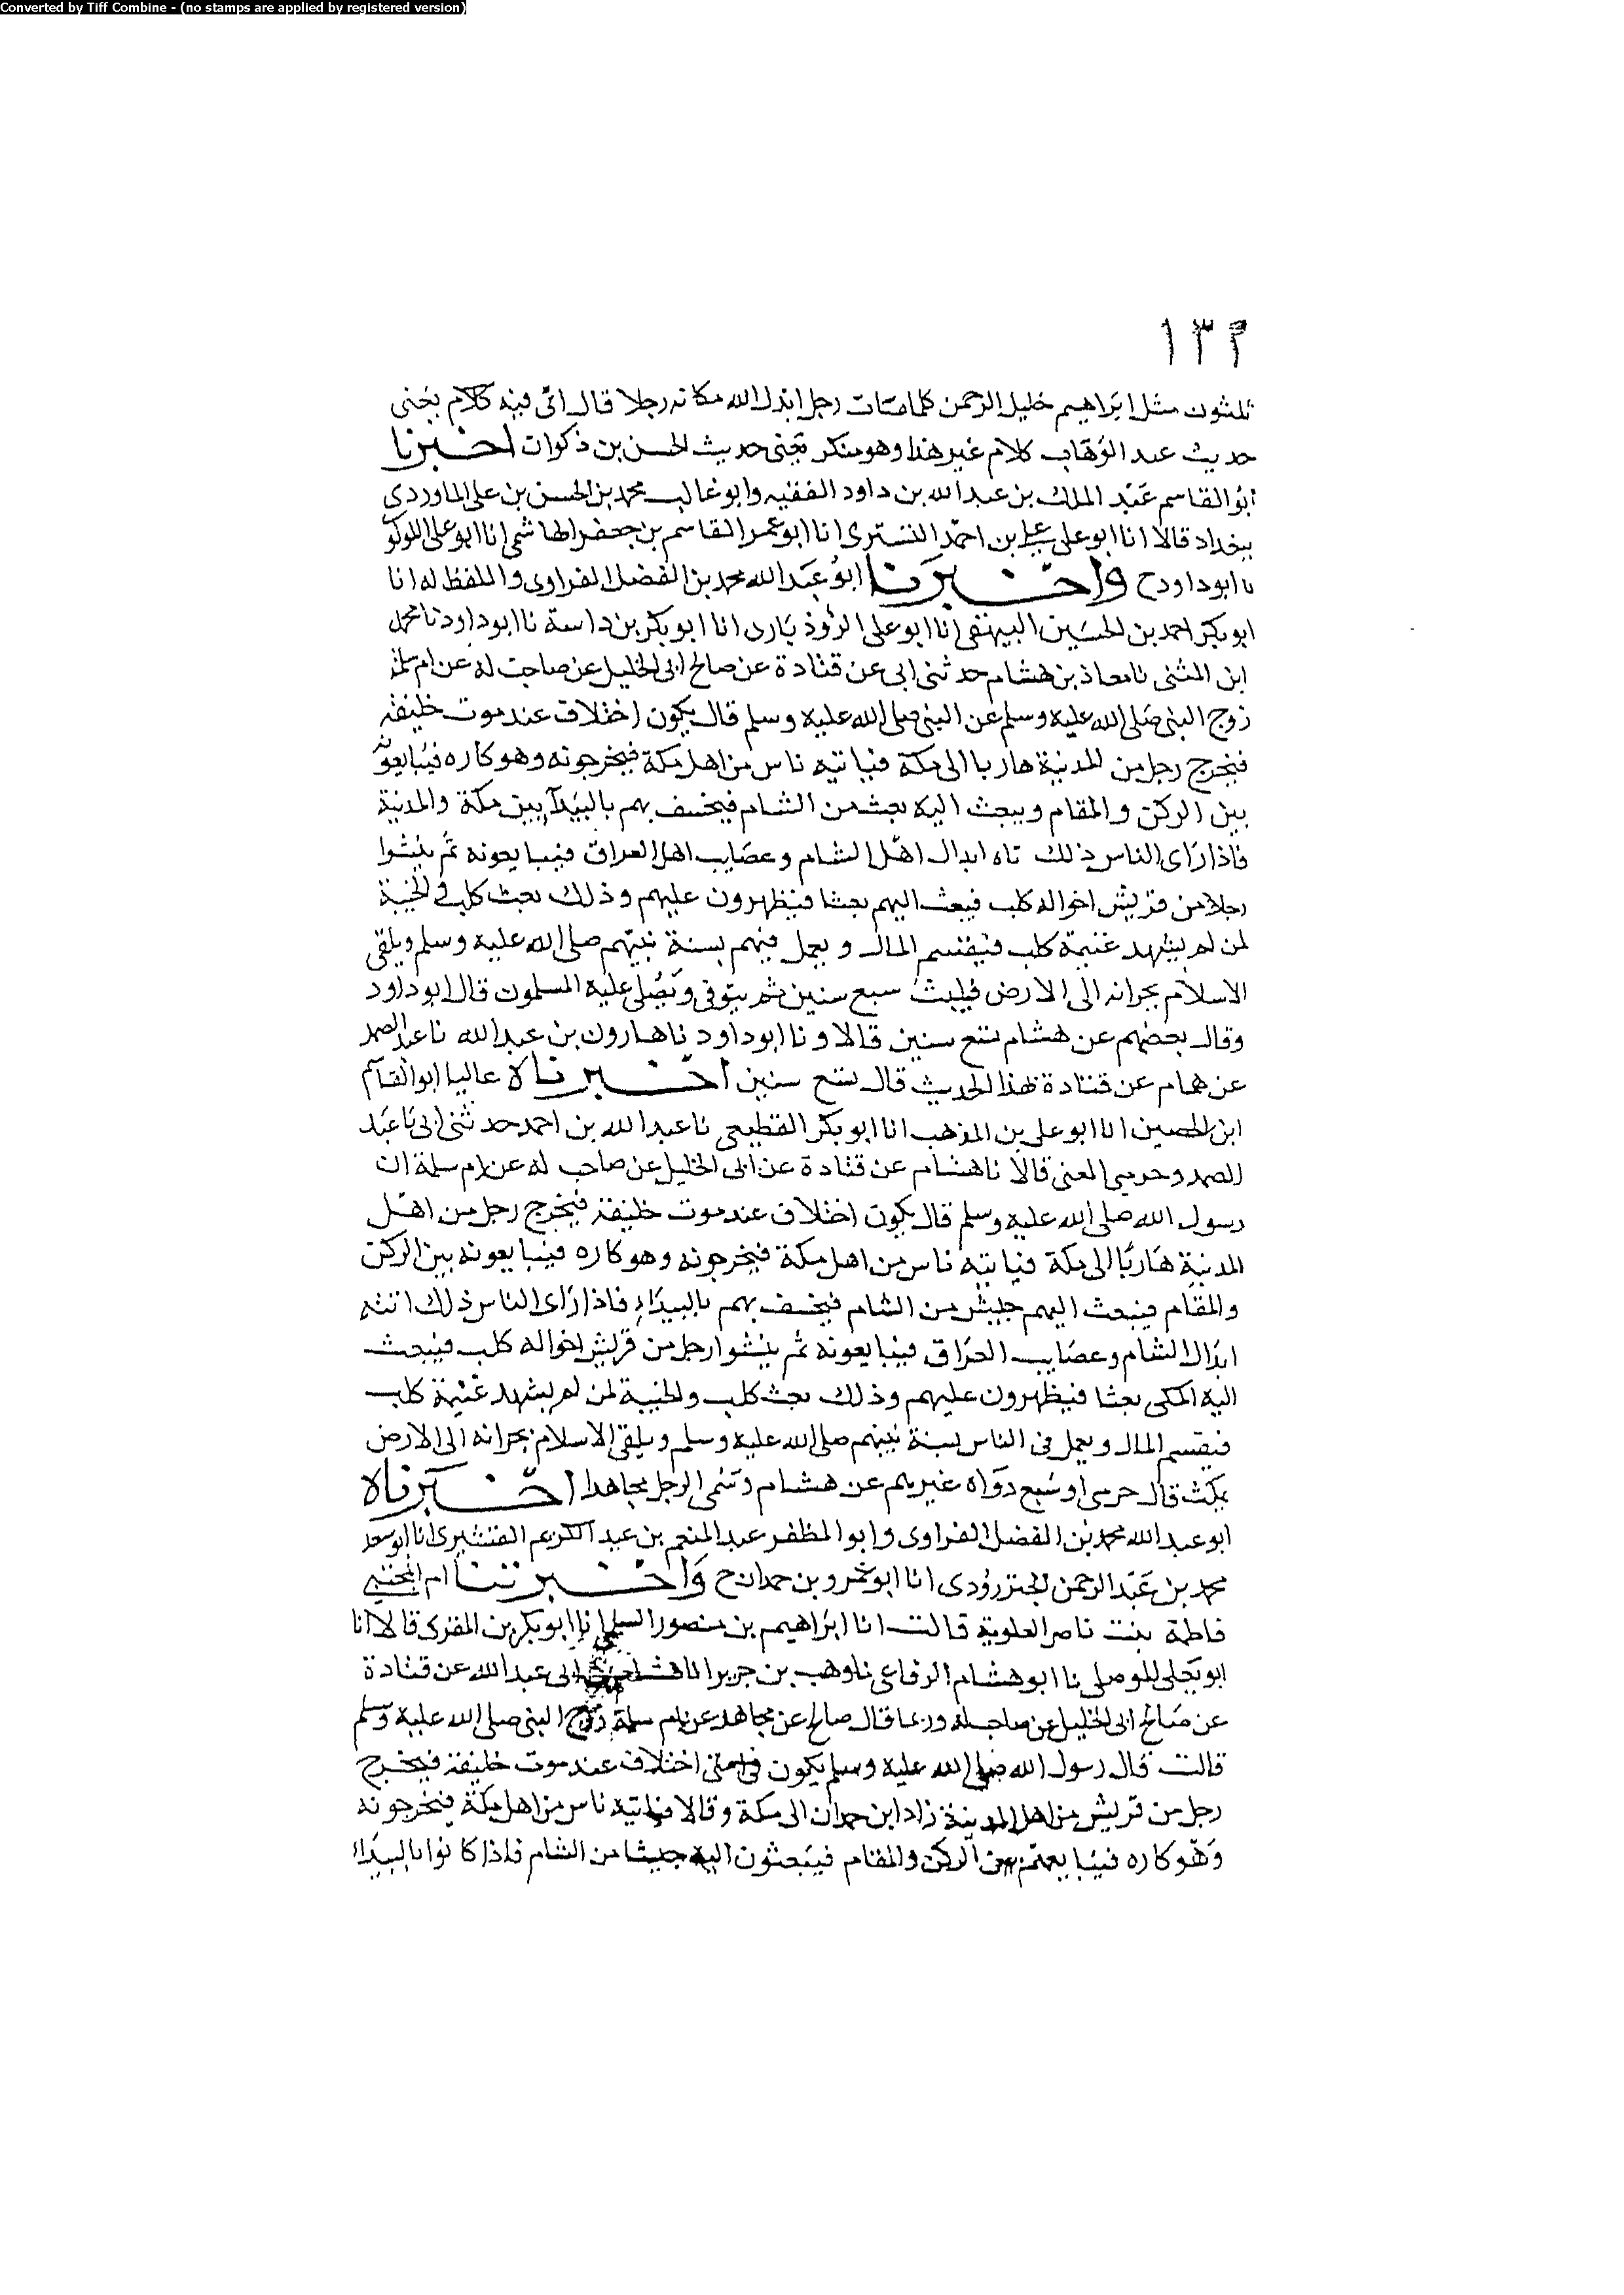 Converted by Tiff Combine - (no stamps are applied by registered version)
١٣٢
ثلثون مثل ابراهيم خليل الرحمن كلما مات رجل ابدل الله مكانه رجلا قال ابى فيه كلام يعنى
حديث عبد الوهاب كلام غير هذا وهو منكر يعنى حديث الحسن بن ذكوان اخبرنا
ابو القاسم عبد الملك بن عبد الله بن داود الفقيه وابو غالب محمد بن الحسن بن على الماوردى
ببغداد قالا انا ابو على على بن احمد التسترى انا ابو عمر القاسم بن جعفر الهاشمى انا ابو على اللولوى
نا ابو داود ح واخبرنا ابو عبد الله محمد بن الفضل الفراوى واللفظ له انا
ابو بكر احمد بن الحسين البيهقى انا ابو على الروذ بارى انا ابو بكر بن داسة نا ابو داود نا محمد
ابن المثنى نا معاذ بن هشام حدثنى ابى عن قتادة عن صالح ابى الخليل عن صاحب له عن ام سلمة
زوج النبى صلى الله عليه وسلم عن النبى صلى الله عليه وسلم قال يكون اختلاف عند موت خليفة
فيخرج رجل من المدينة هاربا الى مكة فياتيه ناس من اهل مكة فيخرجونه وهو كاره فيبايعونه
بين الركن والمقام ويبعث اليه بعث من الشام فيخسف بهم بالبيدآ بين مكة والمدينة
فاذا راى الناس ذلك تاه ابدال اهل الشام وعصايب اهل العراق فيبايعونه ثم ينشوا
رجلا من قريش اخواله كلب فيبعث اليهم بعثا فيظهرون عليهم وذلك بعث كلب فى الخيبة
لمن لم يشهد غنيمة كلب فيقتسم المال ويعمل فيهم بسنة نبيهم صلى الله عليه وسلم ويلقى
الاسلام بجرانه الى الارض فيلبث سبع سنين ثم يتوفى ويصلى عليه المسلمون قال ابو داود
وقال بعضهم عن هشام تسع سنين قالا ونا ابو داود نا هارون بن عبد الله نا عبد الصمد
عن همام عن قتادة بهذا الحديث قال تسع سنين اخبرناه عاليا ابو القاسم
ابن الحصين انا ابو على بن المذهب انا ابو بكر القطيعى نا عبد الله بن احمد حدثنى ابى نا عبد
الصمد وحرمى المعنى قالا نا هشام عن قتادة عن ابى الخليل عن صاحب له عن ام سلمة ان
رسول الله صلى الله عليه وسلم قال يكون اختلاف عند موت خليفة فيخرج رجل من اهل
المدينة هاربا الى مكة فياتيه ناس من اهل مكة فيخرجونه وهو كاره فيبايعونه بين الركن
والمقام فيبعث اليهم جيش من الشام فيخسف بهم بالبيداء فاذا راى الناس ذلك اتته
ابدال الشام وعصايب العراق فيبايعونه ثم ينشوا رجل من قريش اخواله كلب فيبعث
اليه المكى بعثا فيظهرون عليهم وذلك بعث كلب والخيبة لمن لم يشهد غنيمة كلب
فيقسم المال ويعمل فى الناس بسنة نبيهم صلى الله عليه وسلم ويلقى الاسلام بجرانه الى الارض
يمكث قال حرمى او سبع رواه غيرهم عن هشام وسمى الرجل مجاهدا اخبرناه
ابو عبد الله محمد بن الفضل الفراوى وابو المظفر عبد المنعم بن عبد الكريم القشيرى انا ابو سعد
محمد بن عبد الرحمن الجنزرودى انا ابو عمرو بن حمدان ح واخبرتنا ام المجتبى
فاطمة بنت ناصر العلوية قالت انا ابراهيم بن منصور السلمى انا ابو بكر بن المقرى قالا انا
ابو يعلى الموصلى نا ابو هشام الرفاعى نا وهب بن جرير نا هشام ابى عبد الله عن قتادة
عن صالح ابى الخليل عن صاحب له وربما قال صالح عن مجاهد عن ام سلمة زوج النبى صلى الله عليه وسلم
قالت قال رسول الله صلى الله عليه وسلم يكون فى امتى اختلاف عند موت خليفة فيخرج
رجل من قريش من اهل المدينة زاد ابن حمدان الى مكة وقالا فياتيه ناس من اهل مكة فيخرجونه
وهو كاره فيبايعونه بين الركن والمقام فيبعثون اليه جيشا من الشام فاذا كانوا بالبيداء